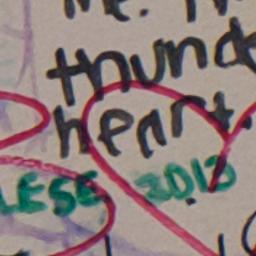 me.
thunde
heart.
LESE 2012